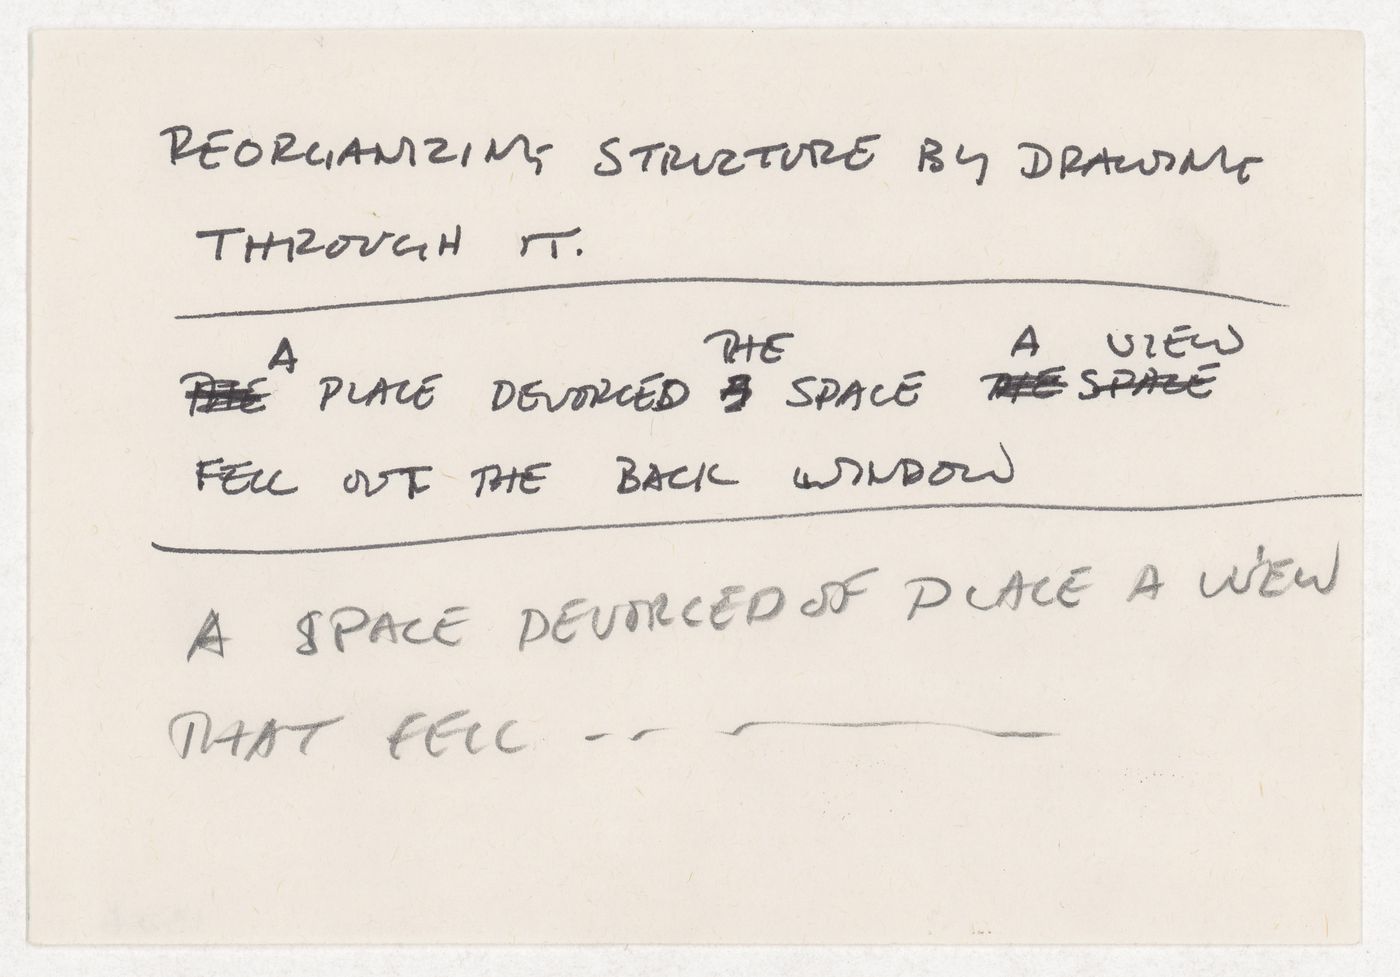 REORGANIZING STRUCTURE BY DRAWING
THROUGH IT.
A THE A VIEW
THE PLACE DEVORCED A SPACE THE SPACE
FELL OUT THE BACK WINDOW
A SPACE DEVORCED OF PLACE A VIEW
THAT FELL -- —